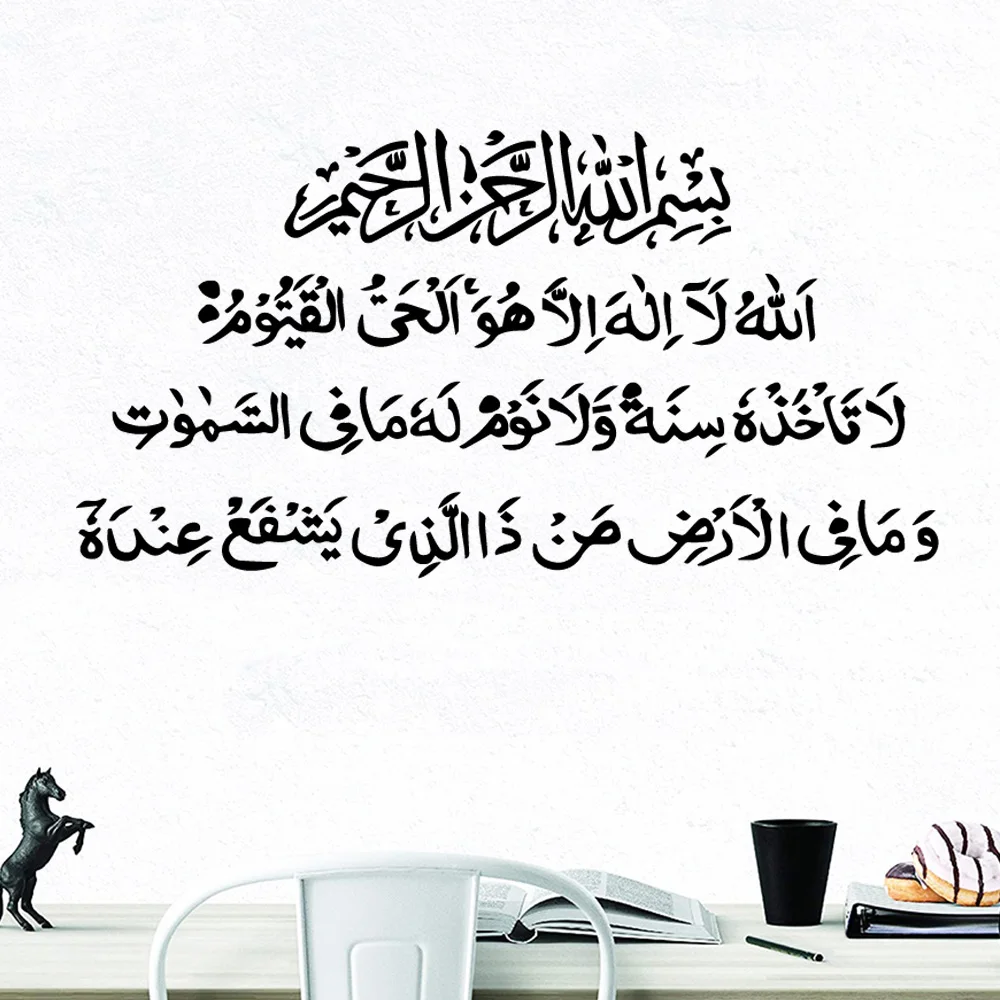 بِسْمِ اللهِ الرَّحْمٰنِ الرَّحِيْمِ
اَللهُ لَآ اِلٰهَ اِلَّا هُوَ ۚ اَلْحَىُّ الْقَيُّوْمُ ۚ
لَا تَاْخُذُهٗ سِنَةٌ وَّلَا نَوْمٌ لَهٗ مَا فِى السَّمٰوٰتِ
وَ مَا فِى الْاَرْضِ مَنْ ذَا الَّذِىْ يَشْفَعُ عِنْدَهٗٓ